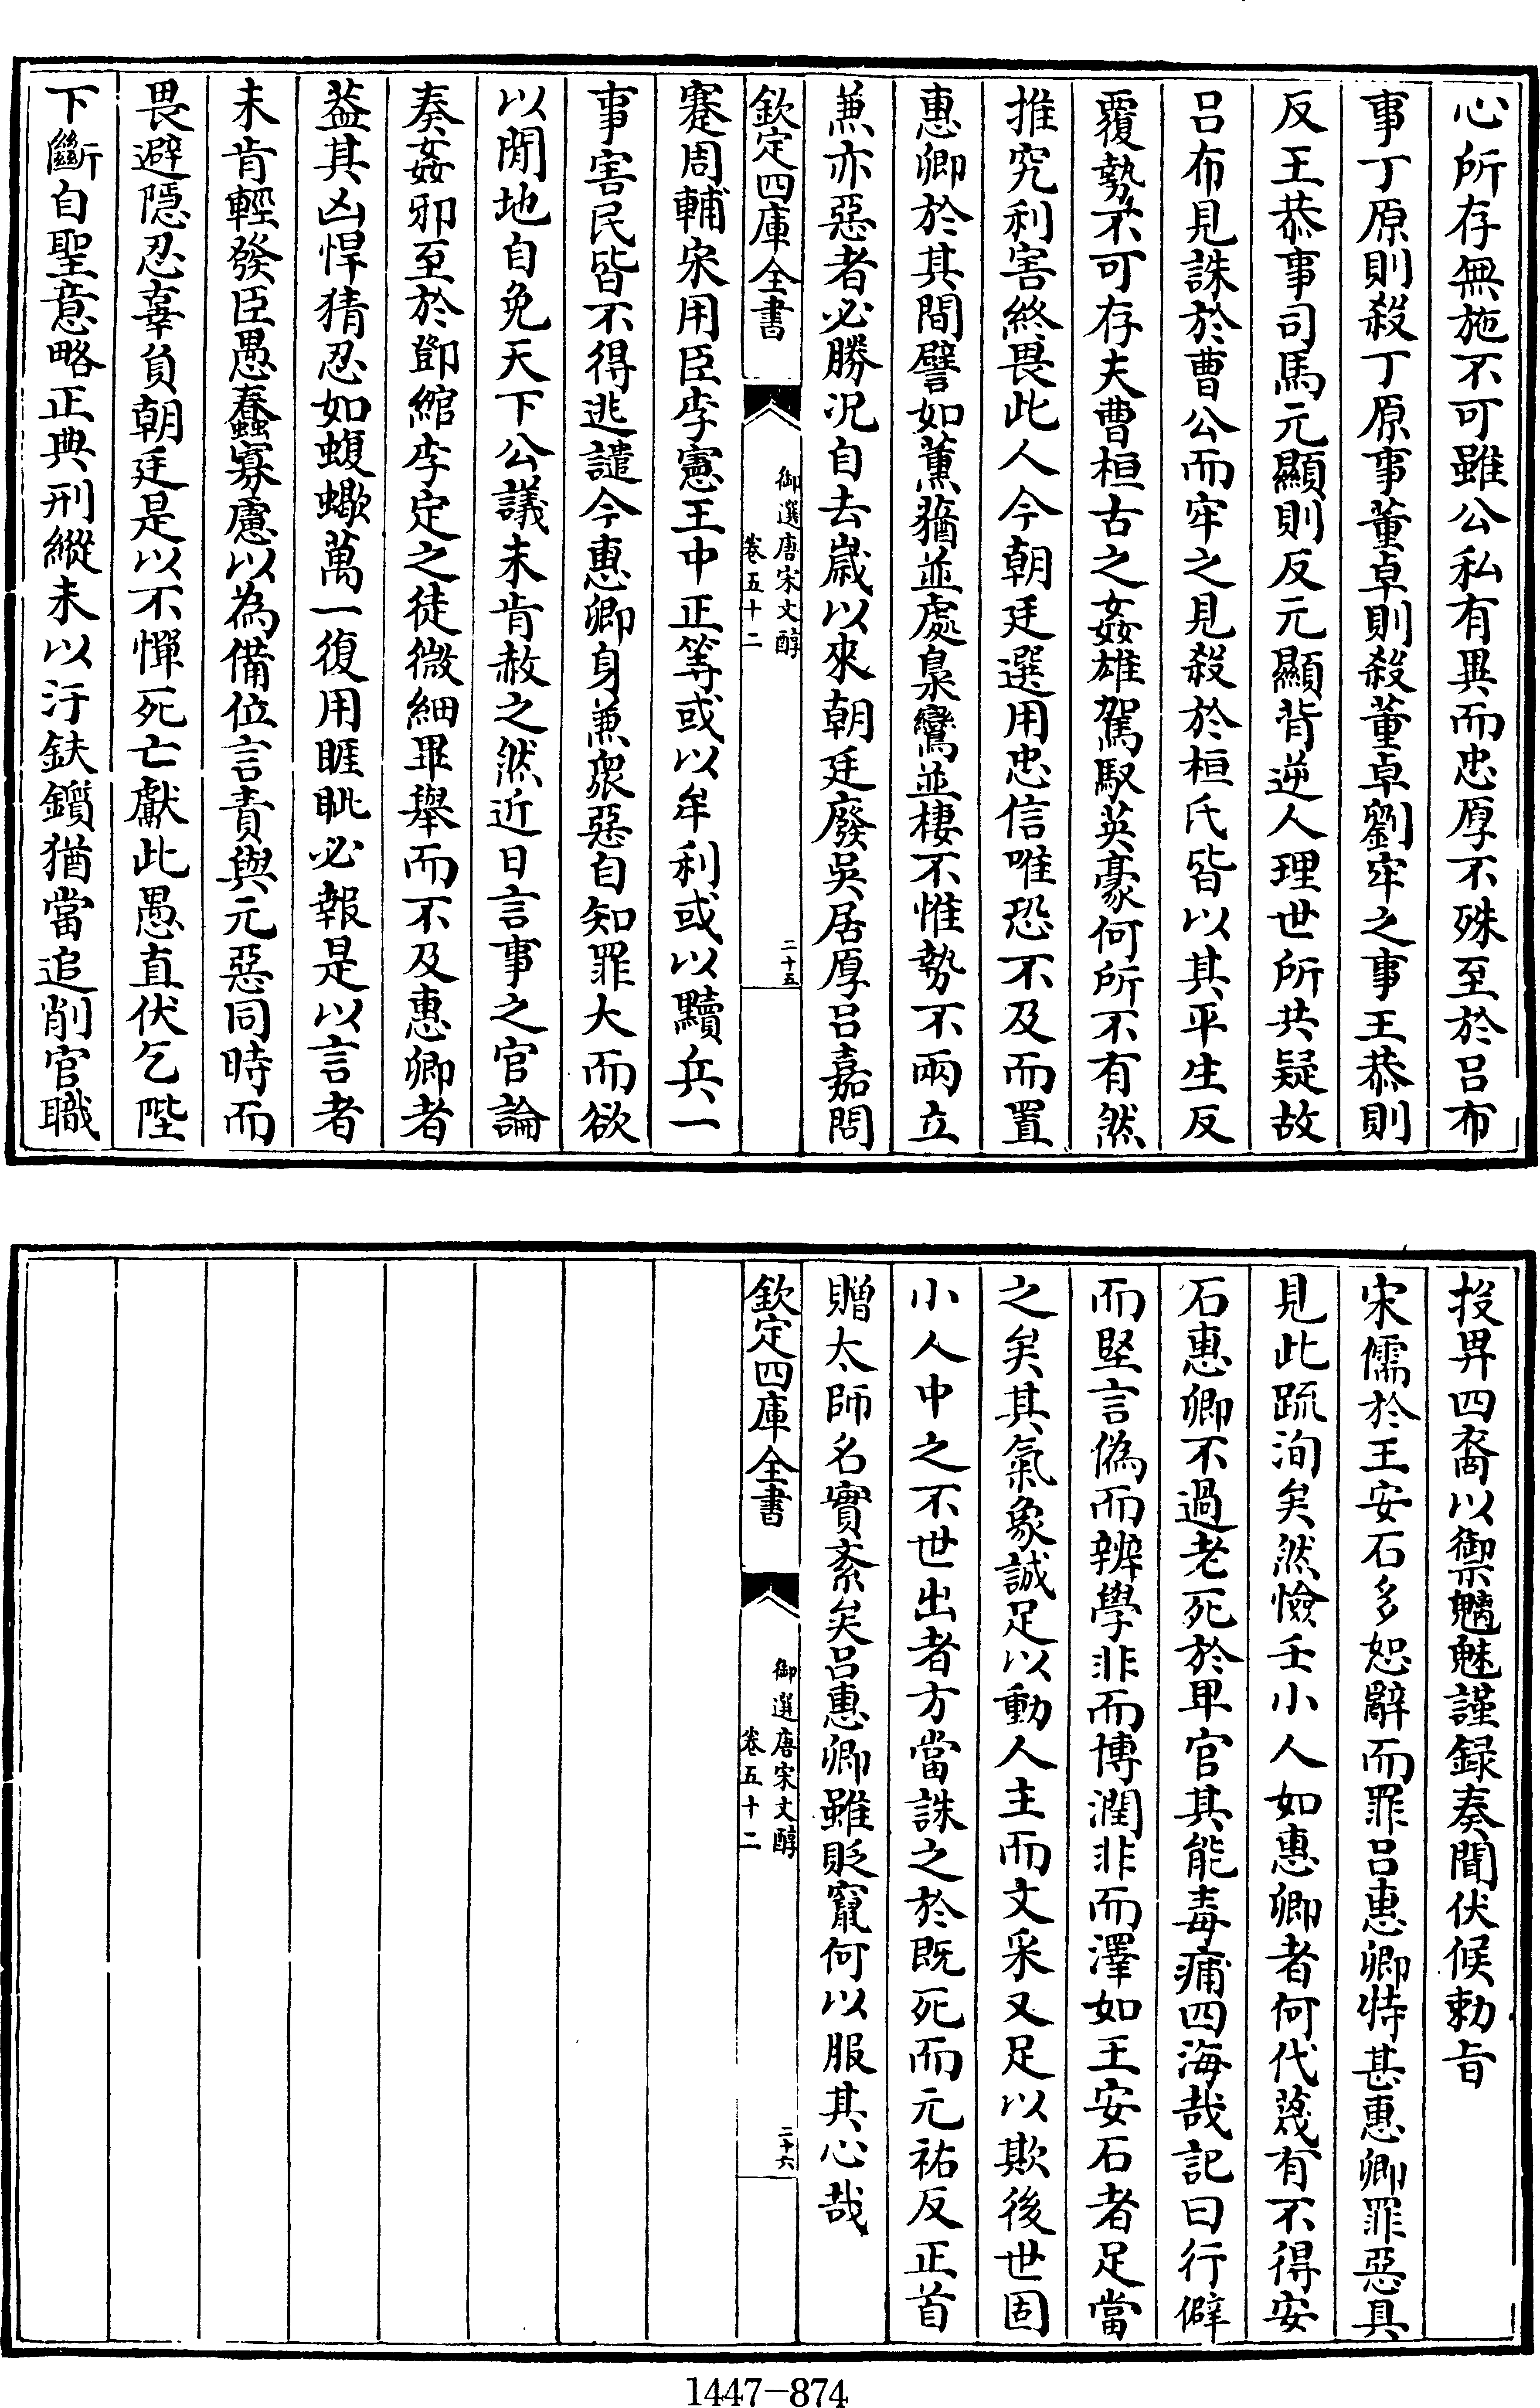 心所存無施不可雖公私有異而忠厚不殊至於吕布
事丁原則殺丁原事董卓則殺董卓劉牢之事王恭則
反王恭事司馬元顯則反元顯背逆人理世所共疑故
吕布見誅於曹公而牢之見殺於桓氏皆以其平生反
覆勢不可存夫曹桓古之姦雄駕馭英豪何所不有然
推究利害終畏此人今朝廷選用忠信唯恐不及而置
惠卿於其間譬如薫蕕並處梟鸞並棲不惟勢不兩立
兼亦惡者必勝况自去歲以來朝廷廢吳居厚吕嘉問
欽定四庫全書
御選唐宋文醇
卷五十二
二十五
蹇周輔宋用臣李憲王中正等或以牟利或以黷兵一
事害民皆不得逃譴今惠卿身兼衆惡自知罪大而欲
以閒地自免天下公議未肯赦之然近日言事之官論
奏姦邪至於鄧綰李定之徒微細畢舉而不及惠卿者
葢其凶悍猜忍如蝮蠍萬一復用睚眦必報是以言者
未肯輕發臣愚蠢寡慮以為備位言責與元惡同時而
畏避隱忍辜負朝廷是以不憚死亡獻此愚直伏乞陛
下斷自聖意略正典刑縱未以汙鈇鑕猶當追削官職
投畀四裔以禦魑魅謹録奏聞伏候勅旨
宋儒於王安石多恕辭而罪吕惠卿特甚惠卿罪惡具
見此疏洵矣然憸壬小人如惠卿者何代蔑有不得安
石惠卿不過老死於卑官其能毒痡四海哉記曰行僻
而堅言偽而辨學非而博潤非而澤如王安石者足當
之矣其氣象誠足以動人主而文采又足以欺後世固
小人中之不世出者方當誅之於既死而元祐反正首
贈太師名實紊矣吕惠卿雖貶竄何以服其心哉
欽定四庫全書
御選唐宋文醇
卷五十二
二十六
1447-874